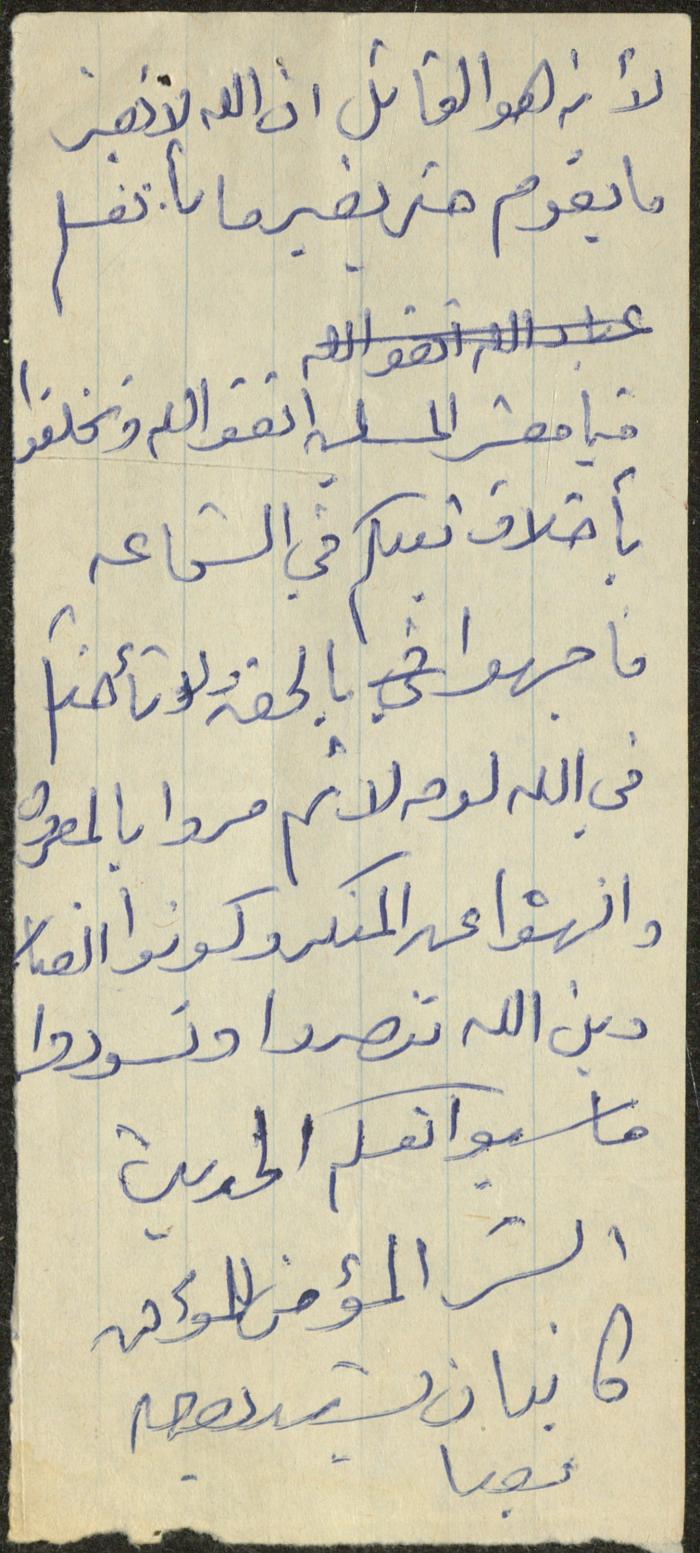 لأنه هو القائل ان الله لا يغير
ما بقوم حتى يغير ما بأنفسهم
عباد الله اتقوا الله
فيا معشر المسلمين اتقوا الله وتخلقوا
بأخلاق نبيكم في الشجاعه
فاجهروا في بالحق ولا تأخذكم
في الله لومه لائم مروا بالمعروف
وانهوا عن المنكر وكونوا انصار
دين الله تنصروا وتسودوا
حاسبوا انفسكم الحديث
المؤمن للمؤمن
كالبنيان يشد بعضه
بعضا